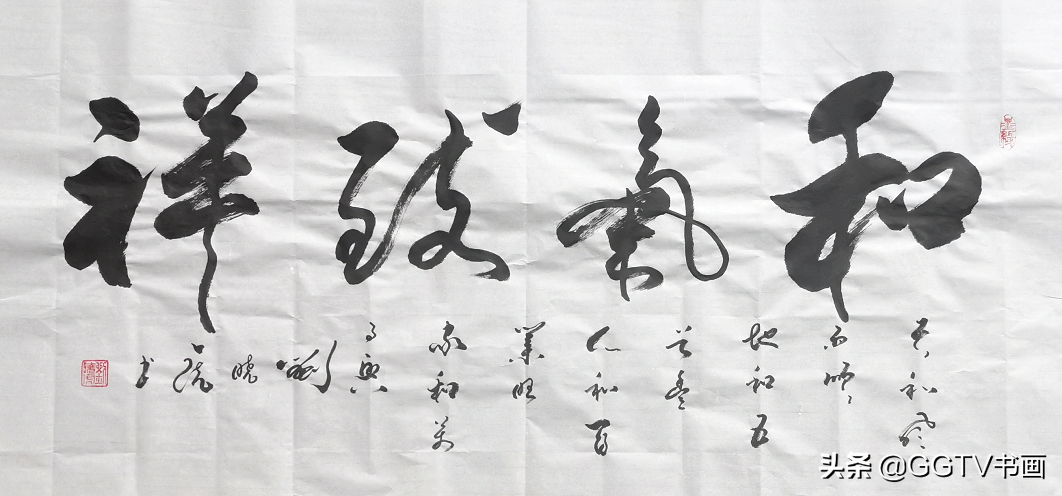 和氣致祥
天和風
雨順
地和五
谷豐
人和百
業旺
家和萬
事興
劉
曉
虎
书
头条 @GGTV书画